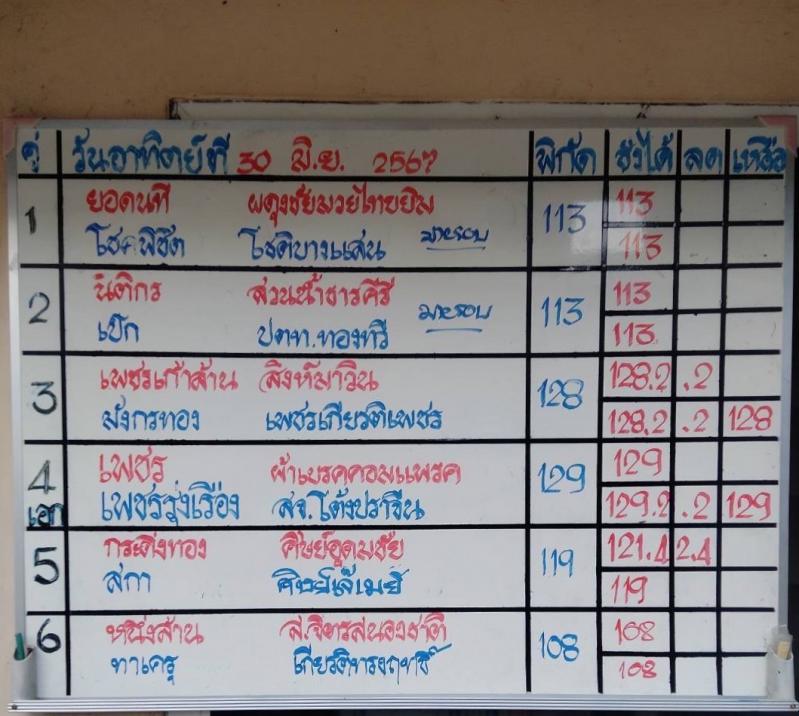 คู่ วันอาทิตย์ที่ 30 มิ.ย. 2567 พิกัด ชั่งได้ ลด เหลือ
1 ยอดนที ผดุงชัยมวยไทยยิม 113 113
โชคพิชิต โชติบางแสน มาหรอบ 113
2 นิติกร สวนน้ำธารคีรี 113 113
เป๊ก ปตท.ทองทวี มาหรอบ 113
3 เพชรเก้าล้าน สิงห์มาวิน 128 128.2 .2
มังกรทอง เพชรเกียรติเพชร 128.2 .2 128
4 เพชร ผ้าเบรคคอมแพรค 129 129
เอก เพชรรุ่งเรือง สจ.โต้งปราจีน 129.2 .2 129
5 กระทิงทอง ศิษย์อุดมชัย 119 121.4 2.4
สกา 119
6 หนึ่งล้าน ส.จิตรสนองชาติ 108 108
ทาเครุ เกียรติทรงฤทธิ์ 108